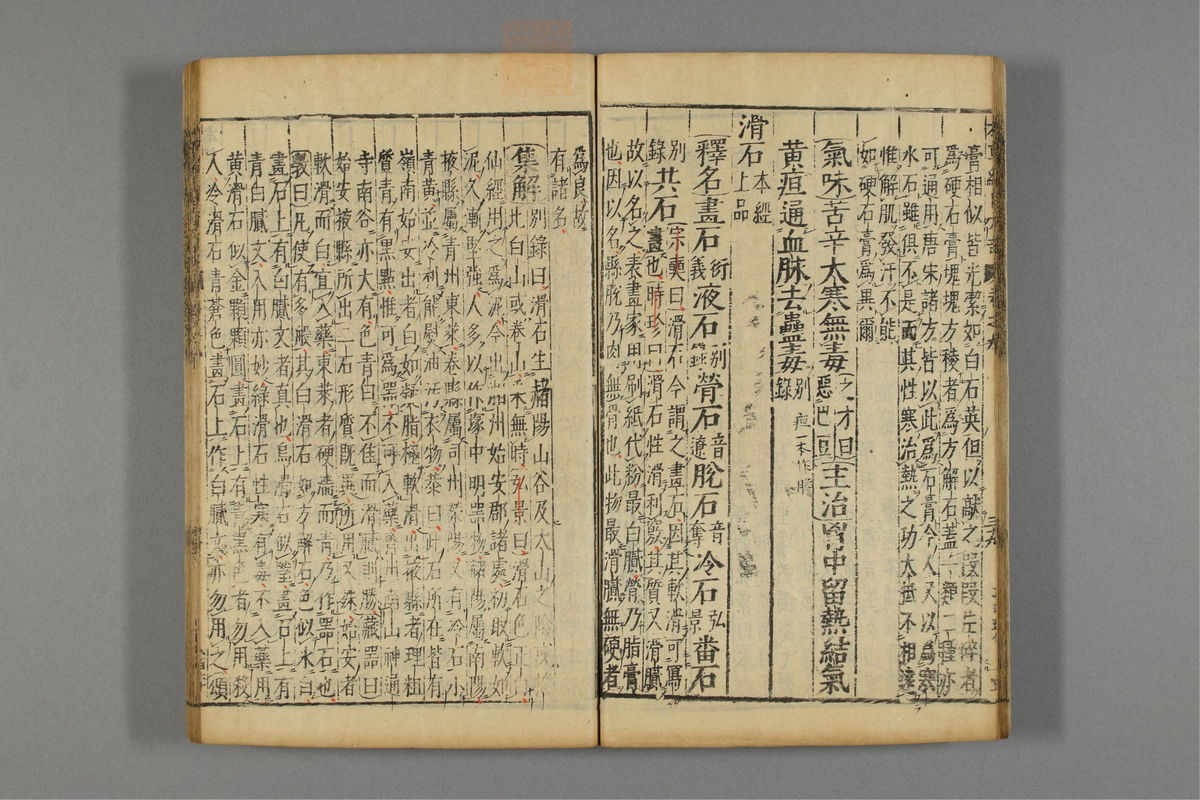 膏相似皆光潔如白石英但以敲之段段片碎者
為硬石膏塊塊方稜者為方解石蓋一類二種亦
可通用唐宋諸方皆以此為石膏今人又以為寒
水石雖俱不是而其性寒治熱之功大抵不相遠
惟解肌發汗不能
如硬石膏為異爾
氣味苦辛大寒無毒之才曰惡巴豆主治胷中留熱結氣
黃疸通血脉去蠱毒別錄疸一本作膽
滑石本經上品
釋名畫石衍義液石別錄膋石音遼脫石音奪冷石弘景番石
別錄共石宗奭曰滑石今謂之畫石因其軟滑可寫
畫也時珍曰滑石性滑利竅其質又滑膩
故以名之表畫家用刷紙代粉最白膩膋乃脂膏
也因以名縣脫乃肉無骨也此物最滑膩無硬者
為良故
有諸名
集解別錄曰滑石生赭陽山谷及太山之陰或掖
北白山或卷山采無時弘景曰滑石色正白
仙經用之為泥今出湘州始安郡諸處初取軟如
泥久漸堅強人多以作塚中明器物赭陽屬南陽
掖縣屬青州東萊卷縣屬司州滎陽又有冷石小
青黃並冷利能熨油汚衣物恭曰此石所在皆有
嶺南始安出者白如凝脂極軟滑出掖縣者理粗
質青有黑點惟可為器不可入藥齊州南山神通
寺南谷亦大有色青白不佳而滑膩則勝藏器曰
始安掖縣所出二石形質既異所用又殊始安者
軟滑而白宜入藥東萊者硬濇而青乃作器石也
斆曰凡使有多般其白滑石如方解石色似冰白
畫石上有白膩文者真也烏滑石似瑿畫石上有
青白膩文入用亦妙綠滑石性寒有毒不入藥用
黃滑石似金顆顆圓畫石上有青黑色者勿用殺
人冷滑石青蒼色畫石上作白膩文亦勿用之頌